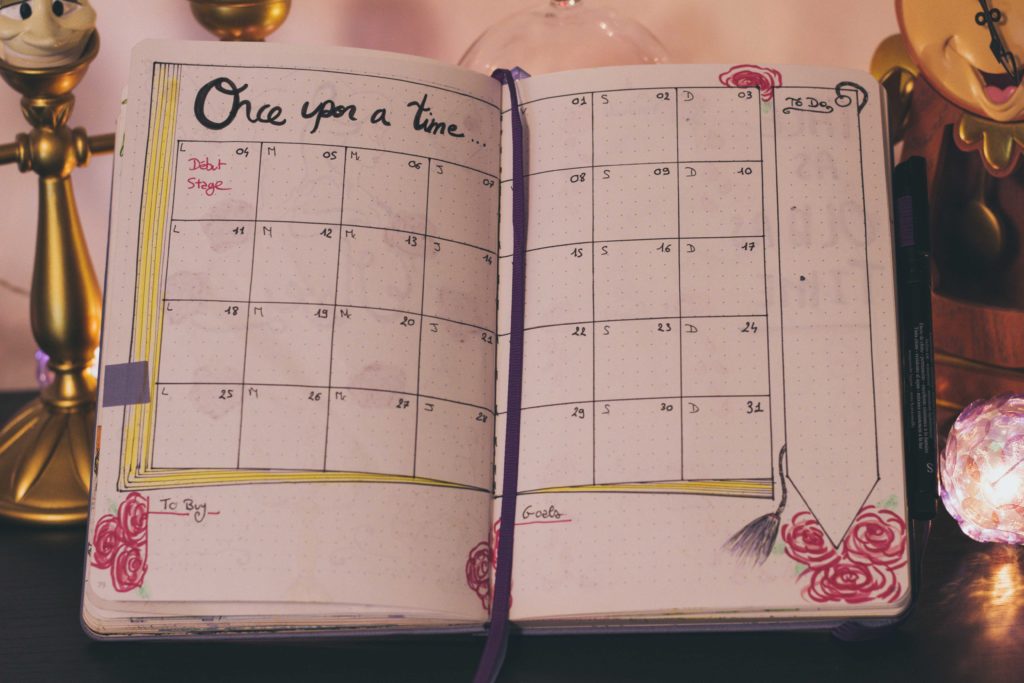 Once upon a time...
01 S 02 D 03
To Do
L 04 M 05 Mc 06 J 07
Début
Stage
08 S 09 D 10
L 11 M 12 Mc 13 J 14
15 S 16 D 17
L 18 M 19 Mc 20 J 21
22 S 23 D 24
L 25 M 26 Mc 27 J 28
29 S 30 D 31
To Buy
Goals